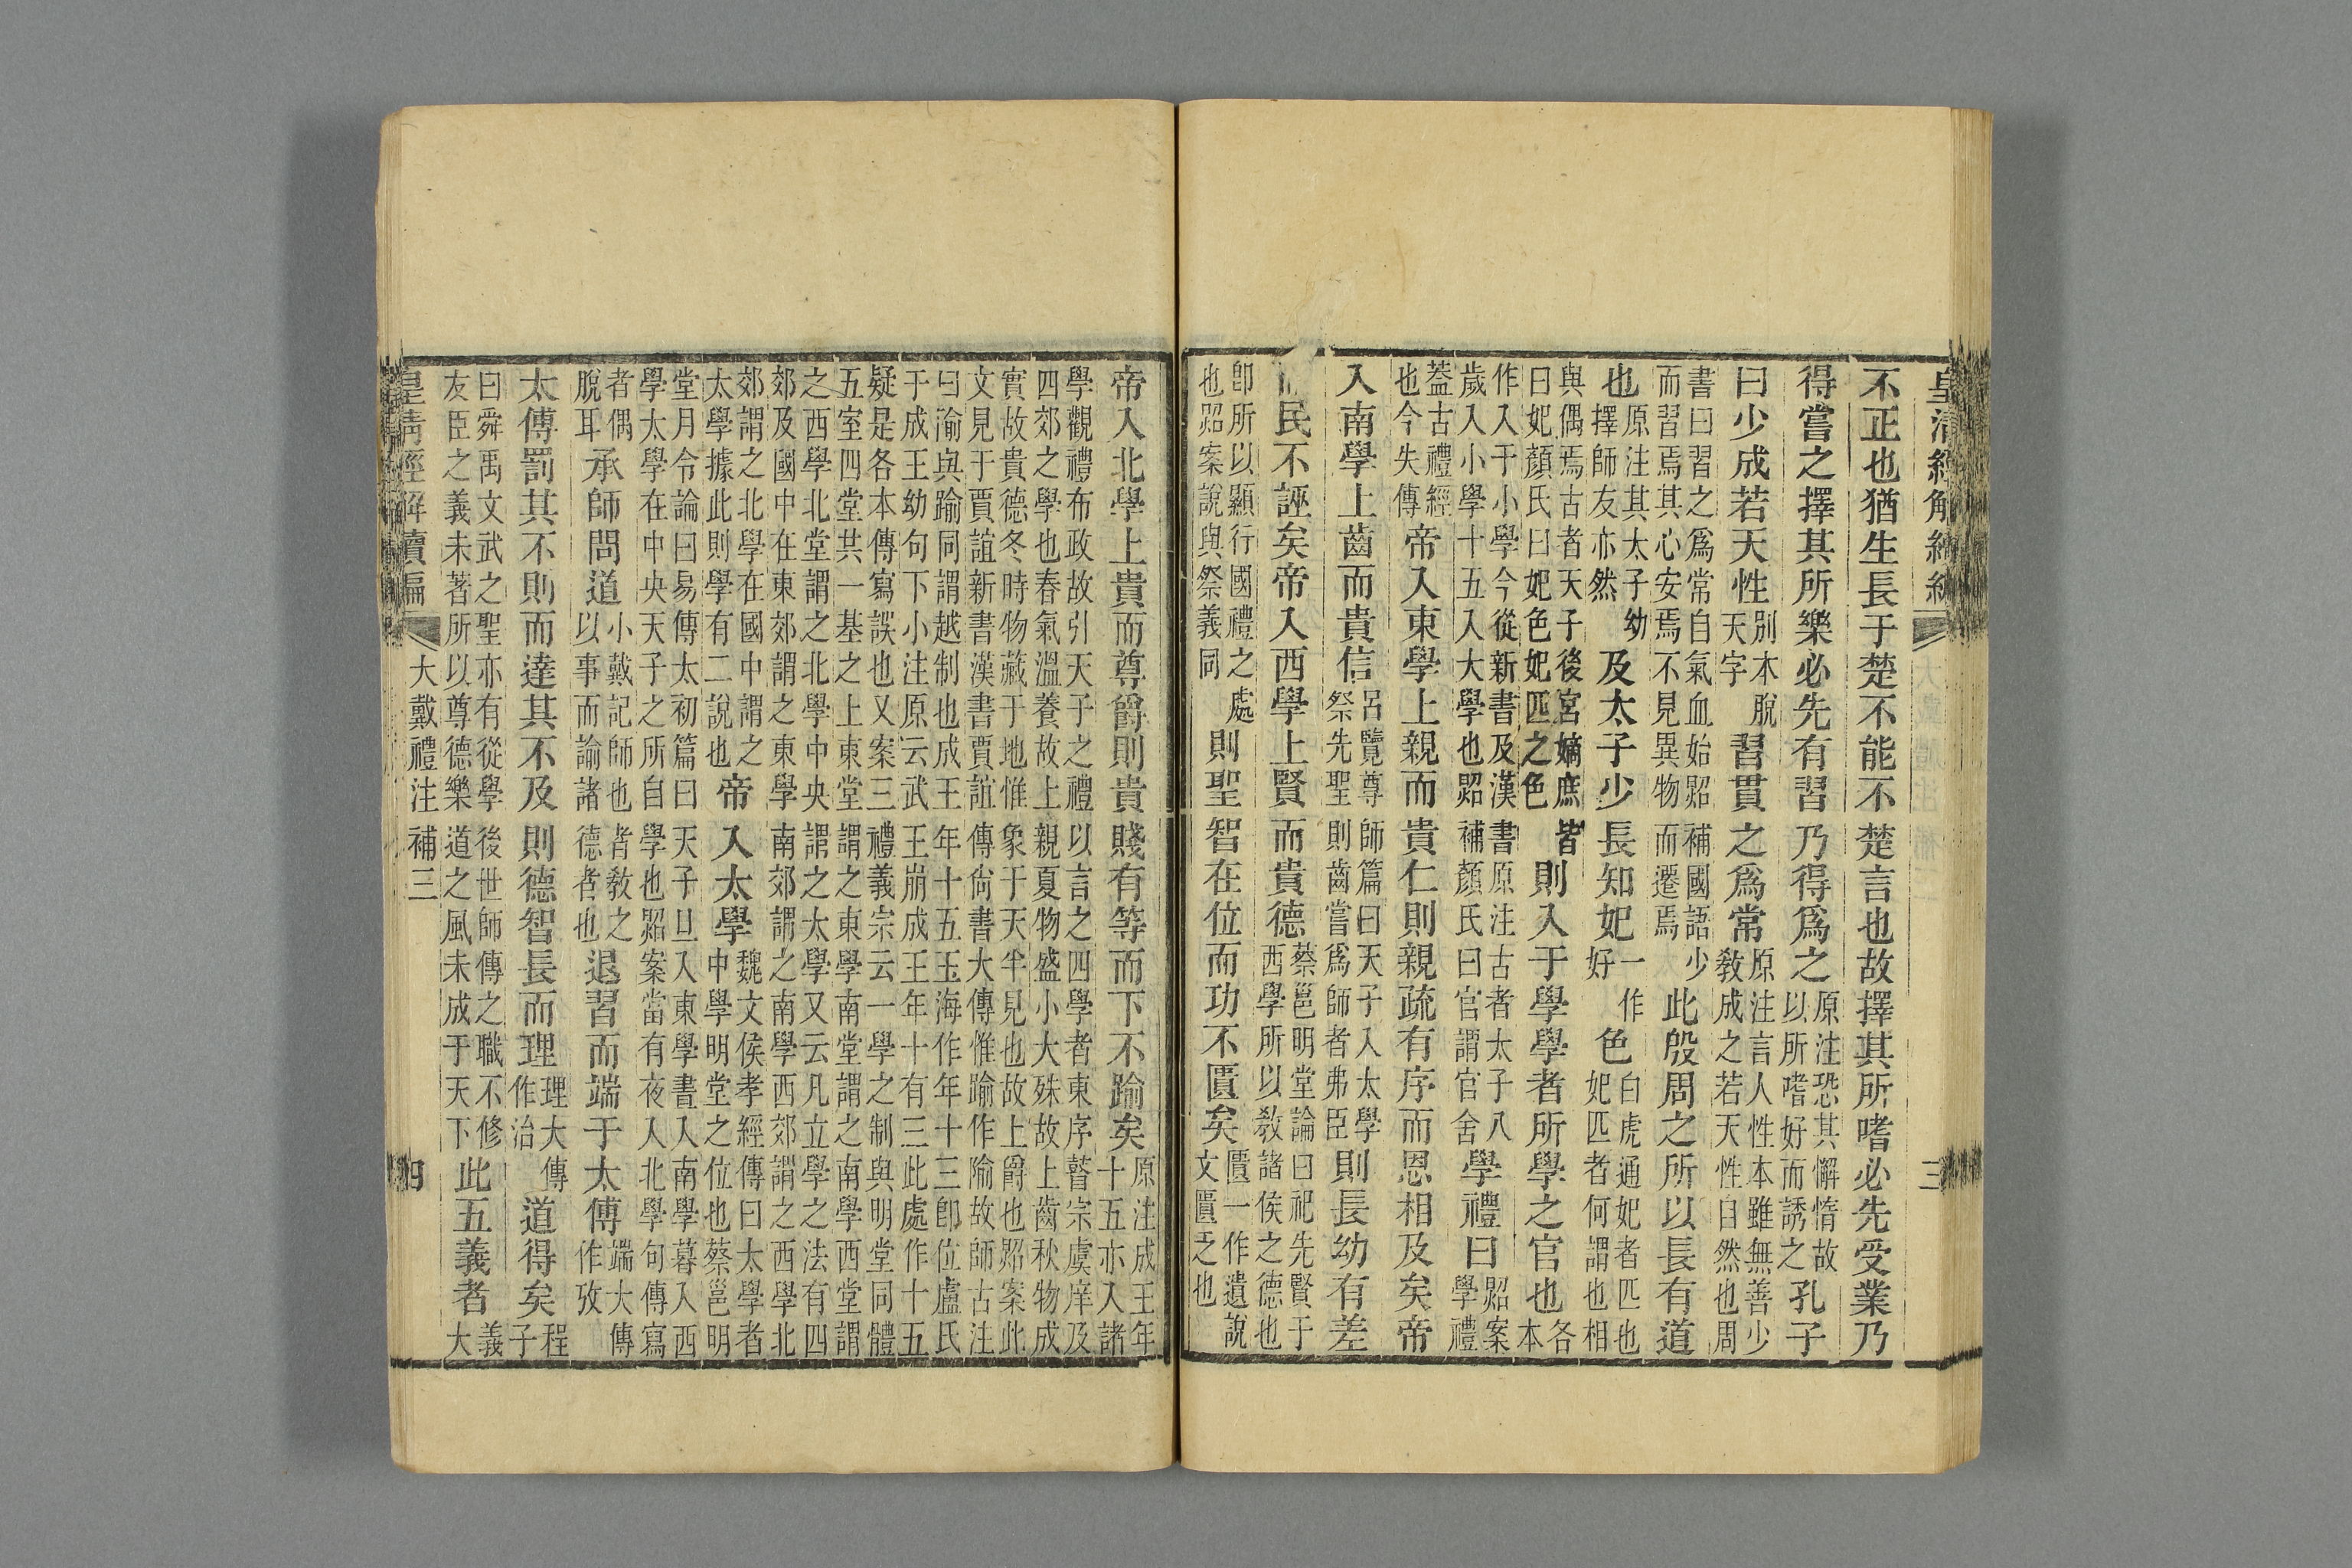 皇清經解續編 三
不正也猶生長于楚不能不楚言也故擇其所嗜必先受業乃
得嘗之擇其所樂必先有習乃得爲之原注恐其懈惰故以所嗜好而誘之孔子
曰少成若天性別本脫天字習貫之爲常原注言人性本雖無善少敎成之若天性自然也周
書曰習之爲常自氣血始炤補國語少而習焉其心安焉不見異物而遷焉此殷周之所以長有道
也原注其太子幼擇師友亦然及太子少長知妃一作好色白虎通妃者匹也妃匹者何謂也相
與偶焉古者天子後宮嫡庶皆曰妃顏氏曰妃色妃匹之色則入于學學者所學之官也各本
作入于小學今從新書及漢書原注古者太子八歲入小學十五入大學也炤補顏氏曰官謂官舍學禮曰炤案學禮
蓋古禮經也今失傳帝入東學上親而貴仁則親疏有序而恩相及矣帝
入南學上齒而貴信呂覽尊師篇曰天子入太學祭先聖則齒嘗爲師者弗臣則長幼有差
民不誣矣帝入西學上賢而貴德蔡邕明堂論曰祀先賢于西學所以敎諸侯之德也
卽所以顯行國禮之處也炤案說與祭義同則聖智在位而功不匱矣匱一作遺說文匱乏也
帝入北學上貴而尊爵則貴賤有等而下不踰矣原注成王年十五亦入諸
學觀禮布政故引天子之禮以言之四學者東序瞽宗虞庠及四郊之學也春氣溫養故上親夏物盛小大殊故上齒秋物成
實故貴德冬時物藏于地惟象于天半見也故上爵也炤案此文見于賈誼新書漢書賈誼傳尙書大傳惟踰作隃故師古注
曰渝與踰同謂越制也成王年十五玉海作年十三卽位盧氏于成王幼句下小注原云武王崩成王年十有三此處作十五
疑是各本傳寫誤也又案三禮義宗云一學之制與明堂同體五室四堂共一基之上東堂謂之東學南堂謂之南學西堂謂
之西學北堂謂之北學中央謂之太學又云凡立學之法有四郊及國中在東郊謂之東學南郊謂之南學西郊謂之西學北
郊謂之北學在國中謂之太學據此則學有二說也帝入太學魏文侯孝經傳曰太學者中學明堂之位也蔡邕明
堂月令論曰易傳太初篇曰天子旦入東學晝入南學暮入西學太學在中央天子之所自學也炤案當有夜入北學句傳寫
者偶脫耳承師問道小戴記師也者敎之以事而諭諸德者也退習而端于太傅端大傳作攷
太傅罰其不則而達其不及則德智長而理理大傳作治道得矣程子
曰舜禹文武之聖亦有從學後世師傅之職不修友臣之義未著所以尊德樂道之風未成于天下此五義者義大
皇清經解續編 大戴禮注補三 四